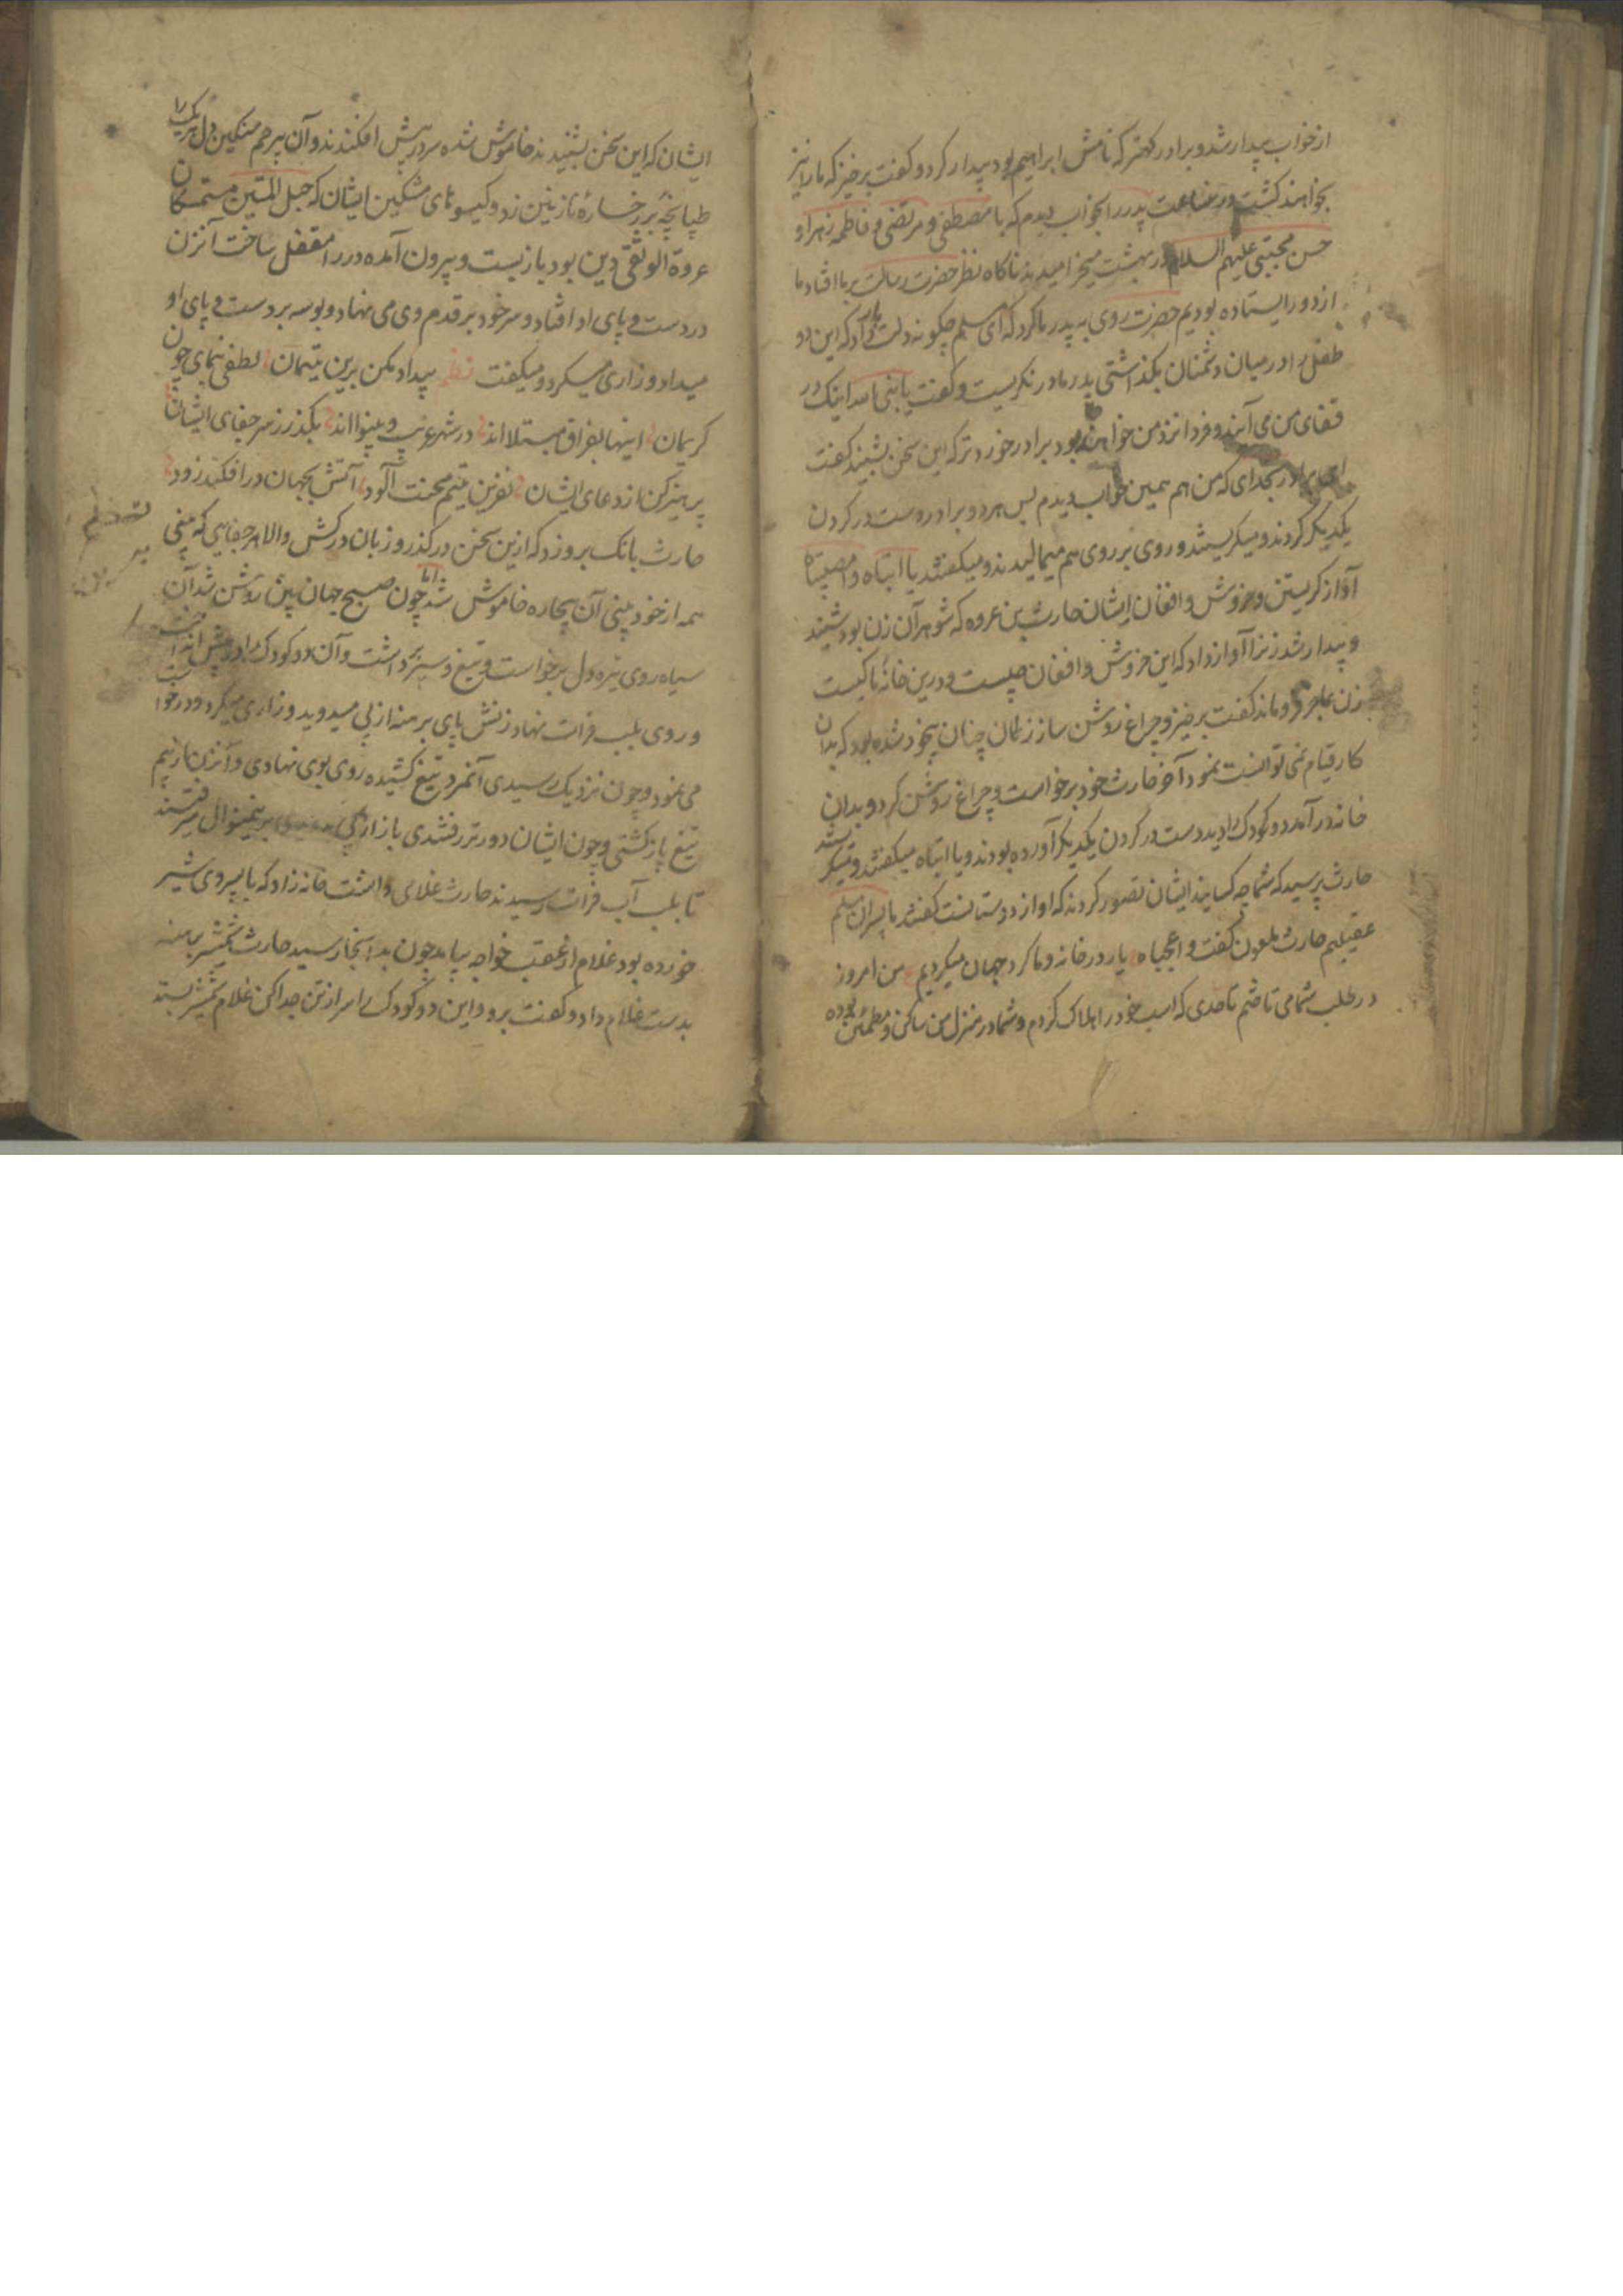 از خواب بیدار شد و برادر کهتر که نامش ابراهیم بود بیدار کرد و گفت برخیز که ما را نیز
بخواهند کشت درین ساعت پدر را بخواب دیدم که با مصطفی و مرتضی و فاطمه زهرا و
حسن مجتبی علیهم السلام در بهشت میخرامیدند ناگاه نظر حضرت رسالت بر ما افتاد و ما
از دور ایستاده بودیم حضرت روی به پدر ما کرد که ای مسلم چگونه دلت داد که این دو
طفل را در میان دشمنان بگذاشتی پدر ما در نگریست و گفت یا نبی الله اینک در
قفای من می آیند و فردا نزد من خواهند بود برادر خوردتر که این سخن بشنید گفت
ای برادر بخدای که من هم همین خواب دیدم پس هر دو برادر دست در گردن
یکدیگر کردند و میگریستند و روی بر روی هم میمالیدند و میگفتند یا ابتاه وا مصیبتاه
آواز گریستن و خروش و افغان ایشان حارث بن عروه که شوهر آن زن بود شنید
و بیدار شد زنرا آواز داد که این خروش و افغان چیست و درین خانه ما کیست
زن عاجز فروماند گفت برخیز و چراغ روشن ساز زنکان چنان بیخود شده بود که بدان
کار قیام نمی توانست نمود آخر حارث خود برخواست و چراغ روشن کرد و بدان
خانه در آمد دو کودک را دید دست در گردن یکدیگر آورده بودند و یا ابتاه میگفتند و میگریستند
حارث پرسید که شما چه کسانید ایشان تصور کردند که او از دوستانست گفتند ما پسران مسلم
عقیلیم حارث ملعون گفت واعجباه یار در خانه و ما گرد جهان میگردیم من امروز
در طلب شما می تاختم تا حدی که اسب خود را هلاک کردم و شما در منزل من ساکن و مطمئن بوده
ایشان که این سخن بشنیدند خاموش شده سر در پیش افکندند و آن بیرحم سنگین دل هر یک را
طپانچهٔ بر رخسارهٔ نازنین زد و گیسوهای مشکین ایشان که حبل المتین متمسکان
عروة الوثقی دین بود باز بست و بیرون آمده در را مقفل ساخت آنزن
در دست و پای او افتاد و سر خود بر قدم وی می نهاد و بوسه بر دست و پای او
میداد و زاری میکرد و میگفت نظم بیداد مکن برین یتیمان لطفی بنمای چون
کریمان اینها بفراق مبتلا اند در شهر غریب و بینوا اند بگذر ز سر جفای ایشان
پرهیز کن از دعای ایشان نفرین یتیم محنت آلود آتش بجهان در افکند زود
حارث بانگ برو زد که ازین سخن در گذر و زبان درکش والا هر جفایی که بینی
همه از خود بینی آن بیچاره خاموش شد اما چون صبح جهان بین روشن شد آن
سیاه روی تیره دل برخواست و تیغ و سپر برداشت و آن دو کودک را در پیش انداخت
و روی بلب فرات نهاد زنش پای برهنه از پی میدوید و زاری میکرد و درخواست
می نمود و چون نزدیک رسیدی آنمرد تیغ کشیده روی بوی نهادی و آنزن از بیم
تیغ باز گشتی و چون ایشان دورتر رفتندی باز از پی برینمنوال میرفتند
تا بلب آب فرات رسیدند حارث غلامی داشت خانه زاد که با پسر وی شیر
خورده بود غلام از عقب خواجه بیامد چون بدانجا رسید حارث شمشیر برهنه
بدست غلام داد و گفت برو و این دو کودک را سر از تن جدا کن غلام شمشیر بستد